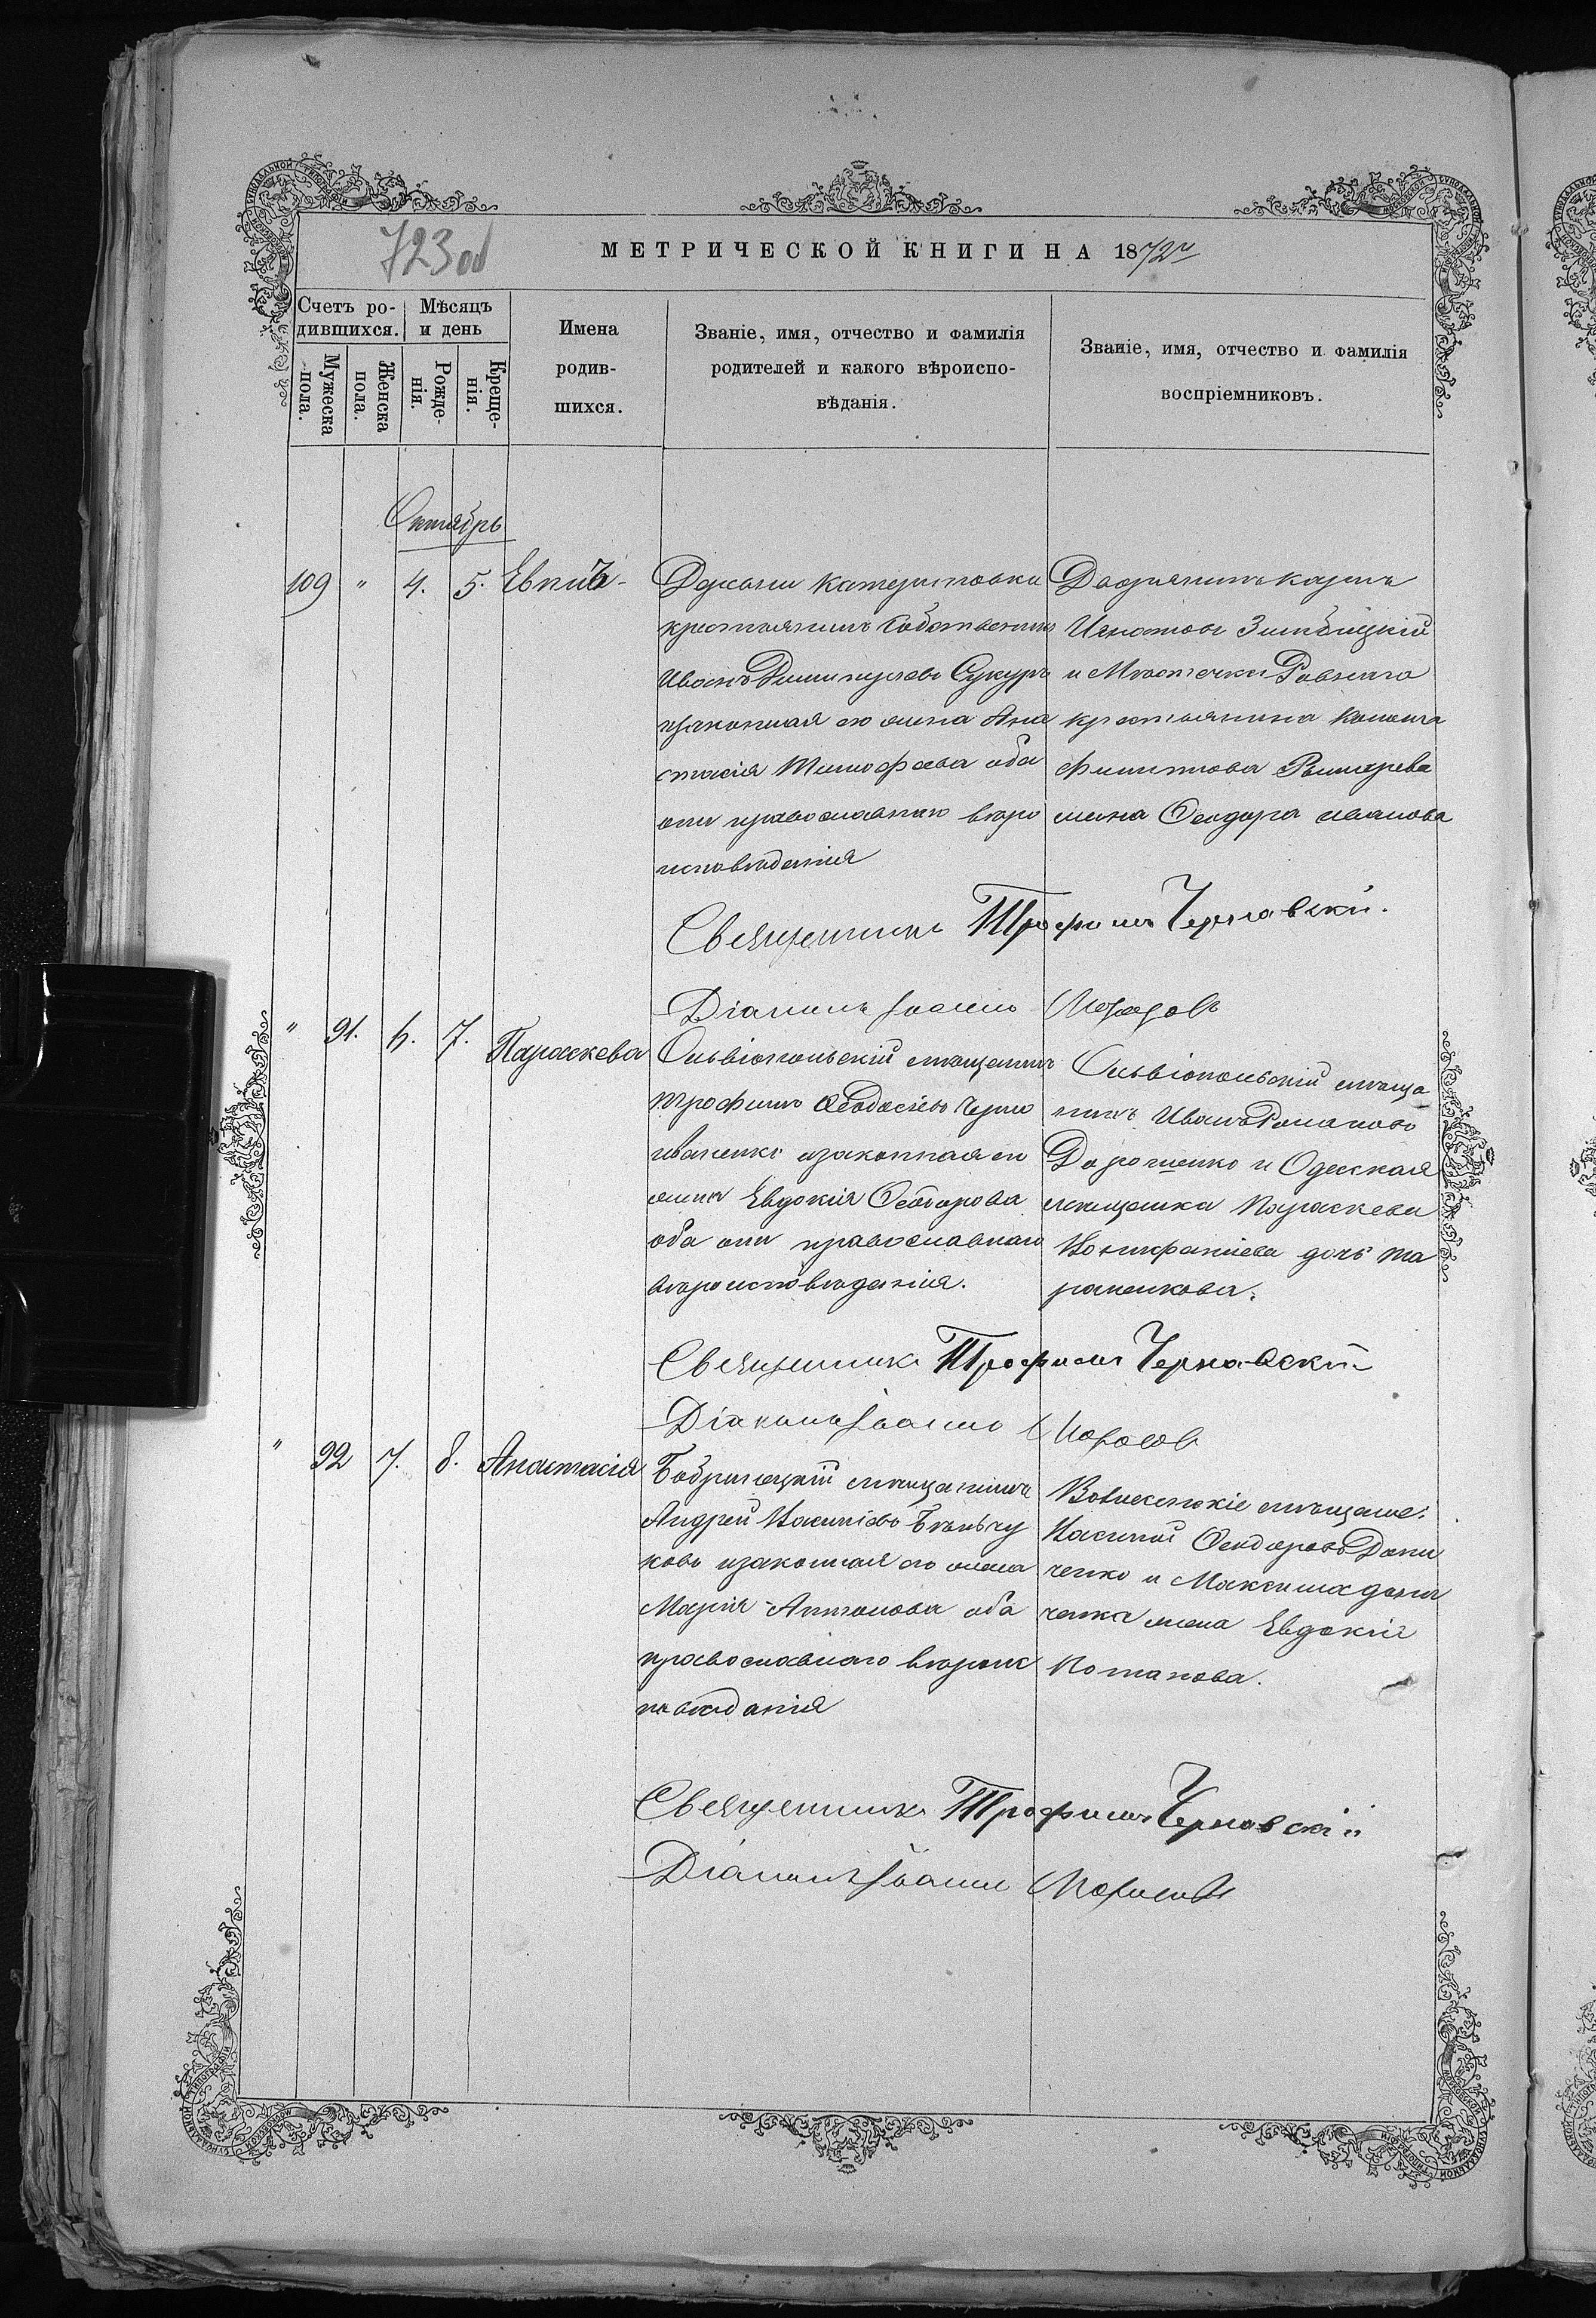 723 об
МЕТРИЧЕСКОЙ КНИГИ НА 1872 г
Счетъ ро-
дившихся.
Мѣсяцъ
и день
Мужеска
пола.
Женска
пола.
Рожде-
нія.
Креще-
нія.
Имена
родив-
шихся.
Званіе, имя, отчество и фамилія
родителей и какого вѣроиспо-
вѣданія.
Званіе, имя, отчество и фамилія
воспріемниковъ.
Октябрь
109 " 4. 5. Евплъ
Катериновки
крестьянинъ собственникъ
Иванъ Сукуръ
изаконная его жена Ана
стасія Тимофѣева оба
они православнаго вѣро
исповѣданія
Дворянинъ Карлъ
Игнатовъ
и Мѣстечки Ровнаго
крестьянина
Филипова
жена Ѳеодора Иванова
Священникъ Трофимъ Чернявскій.
Діаконъ Іоаннъ Морозовъ
" 91. 6. 7. Параскева
Ольвіопольскій мѣщанинъ
Трофимъ Ѳеодосіевъ Черно
иваненко изаконная его
жена Евдокія Ѳеодорова
оба они православнаго
вѣроисповѣданія.
Ольвіопольскій мѣща
нинъ Иванъ Романовъ
Дорошенко и Одесская
мѣщанка Параскева
дочь Та
раненкова.
Священникъ Трофимъ Чернявскій
Діаконъ Іоаннъ Морозовъ
" 92 7. 8. Анастасія
Бобринецкій мѣщанинъ
Андрей Василіевъ Бѣньчу
ковъ изаконная его жена
Марія Антонова оба
православнаго вѣроис
повѣданія
Вознесенскіе мѣщане:
Василій Ѳеодоровъ Дани
ченко и Максима Дани
ченка жена Евдокія
Потапова.
Священникъ Трофимъ Чернявскій
Діаконъ Іоаннъ Морозовъ